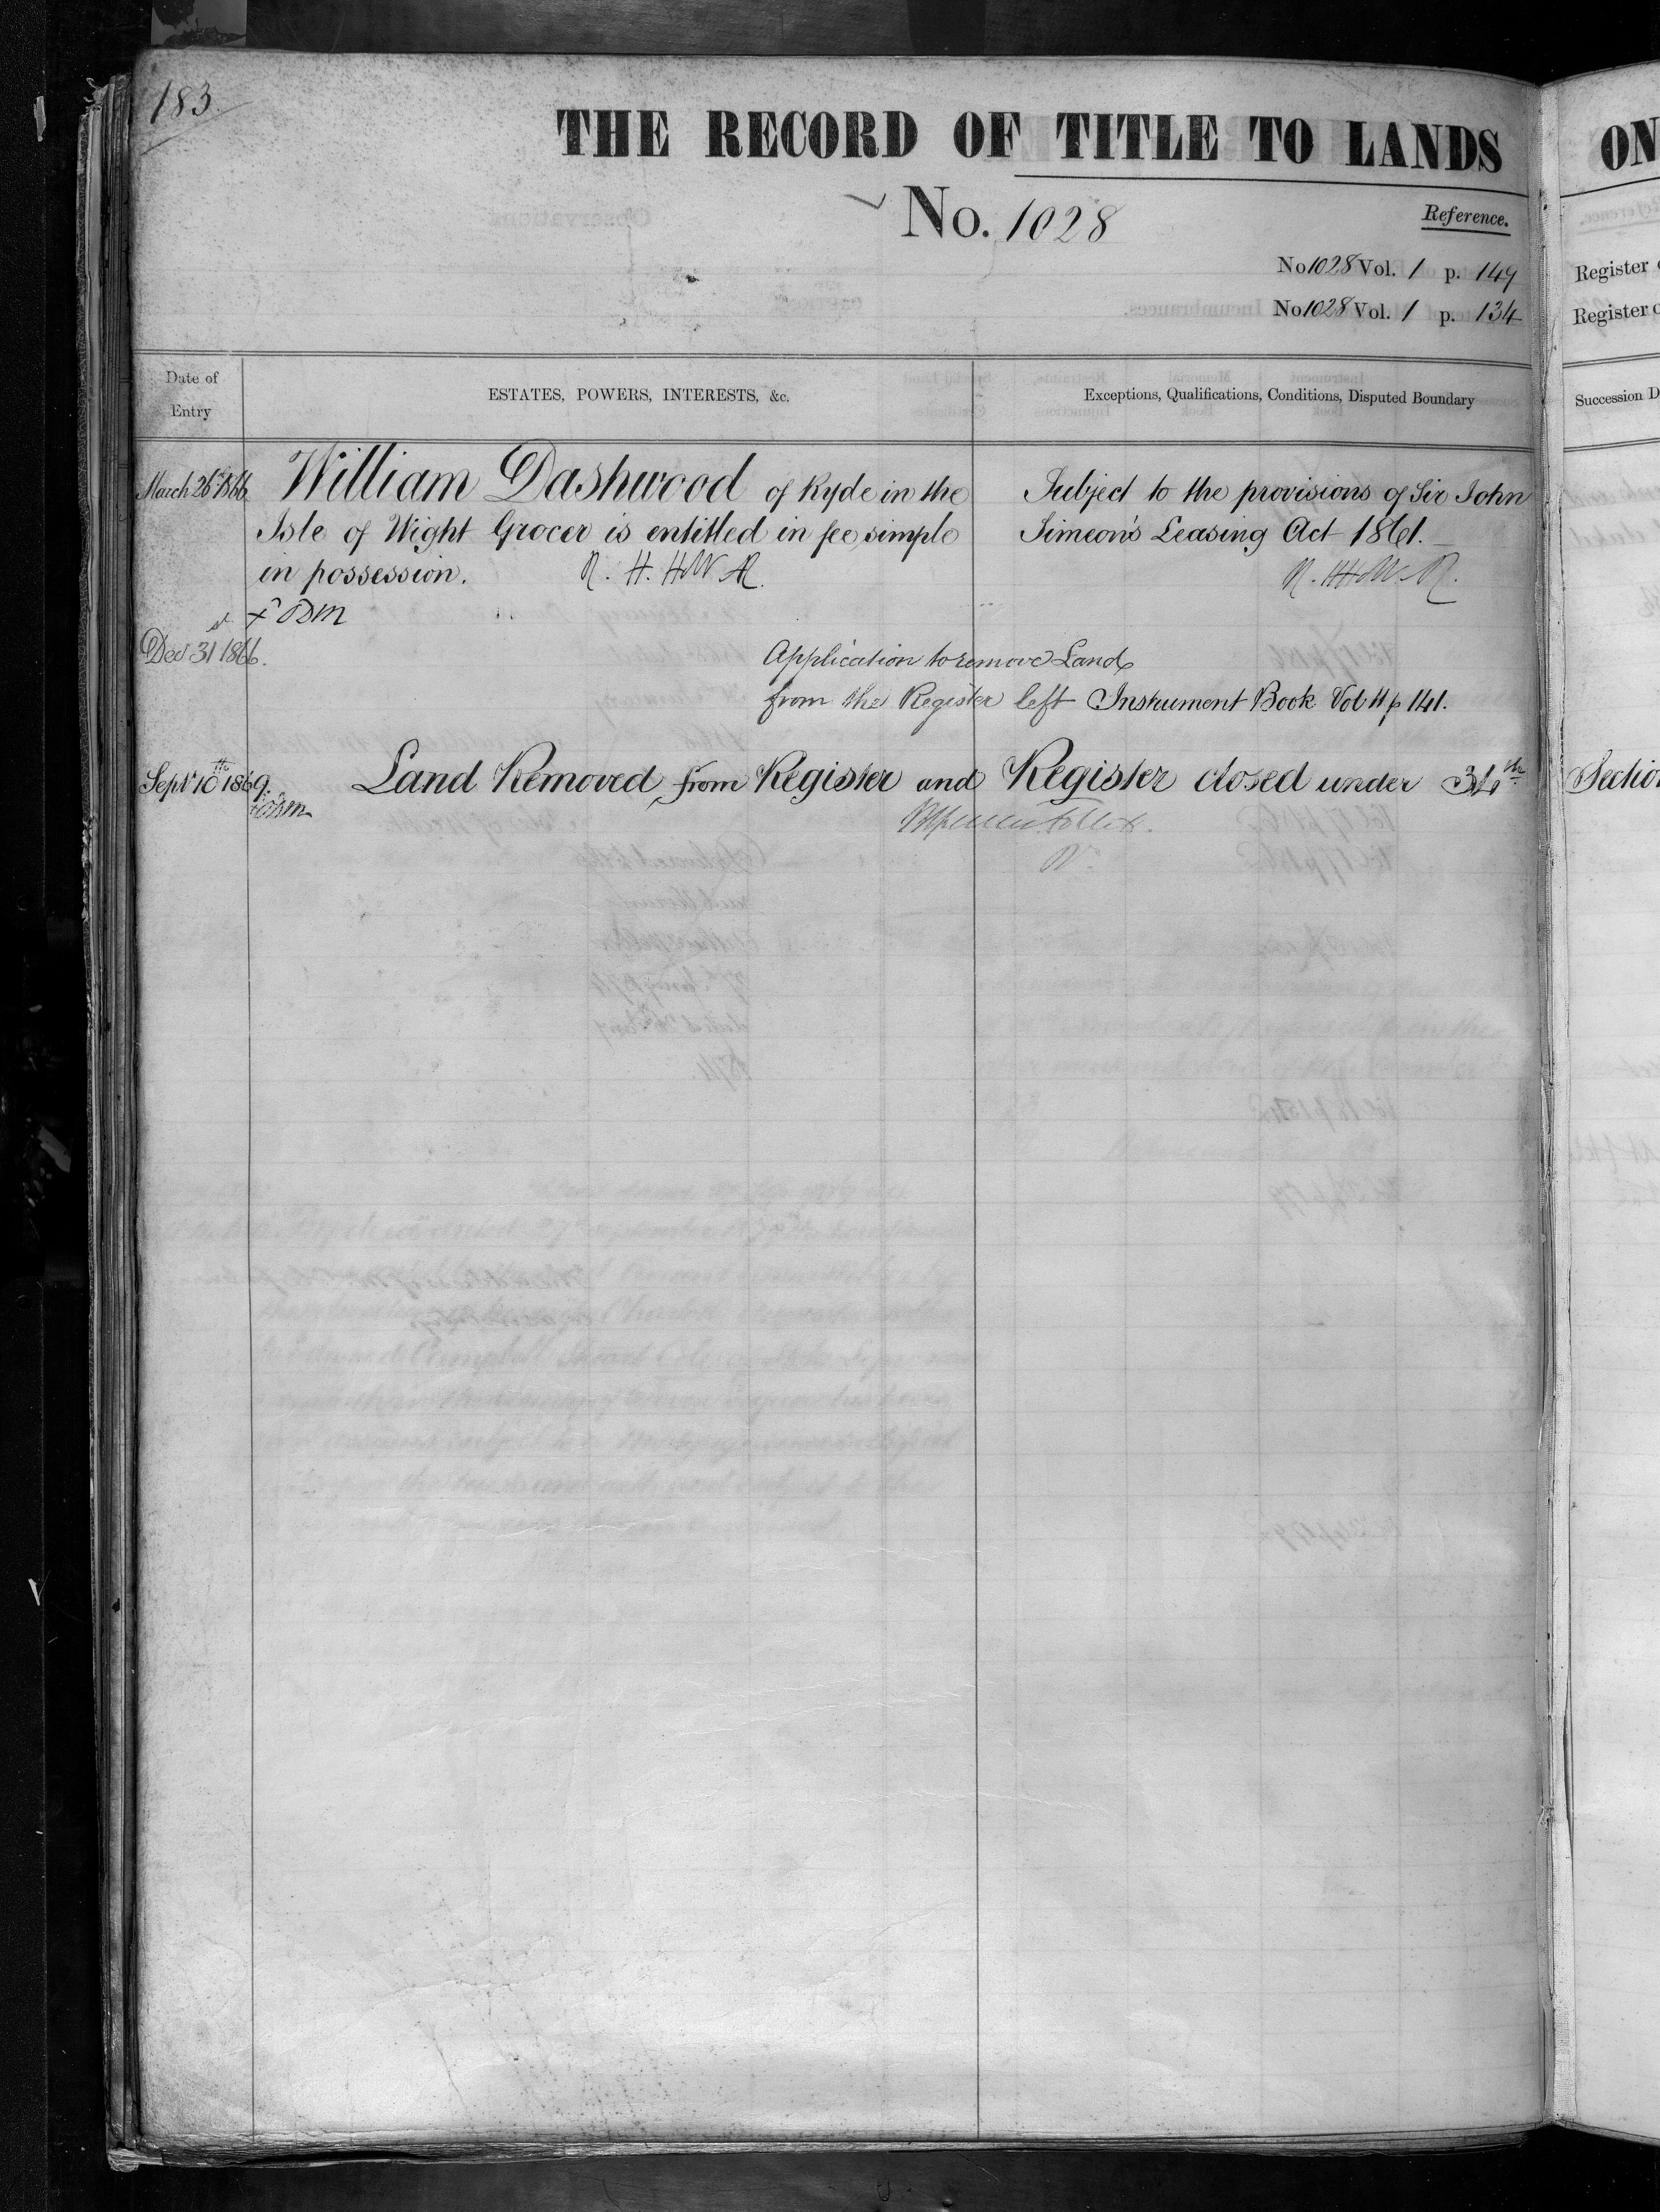 183.
THE RECORD OF TITLE TO LANDS
ON
No. 1028
Reference.
No 1028 Vol. 1 p. 149
Register
No 1028 Vol. 1 p. 134
Register
Date of Entry
ESTATES, POWERS, INTERESTS, &c.
Exceptions, Qualifications, Conditions, Disputed Boundary
Succession D
March 26th 1866
William Dashwood of Ryde in the
Isle of Wight Grocer is entitled in fee simple
in possession.
Subject to the provisions of Sir John
Simeon's Leasing Act 1861.
Decr 31st 1866.
Application to remove Land
from the Register left Instrument Book Vol 4 p 141.
Septr 10th 1869.
Land Removed from Register and Register closed under 34th Section